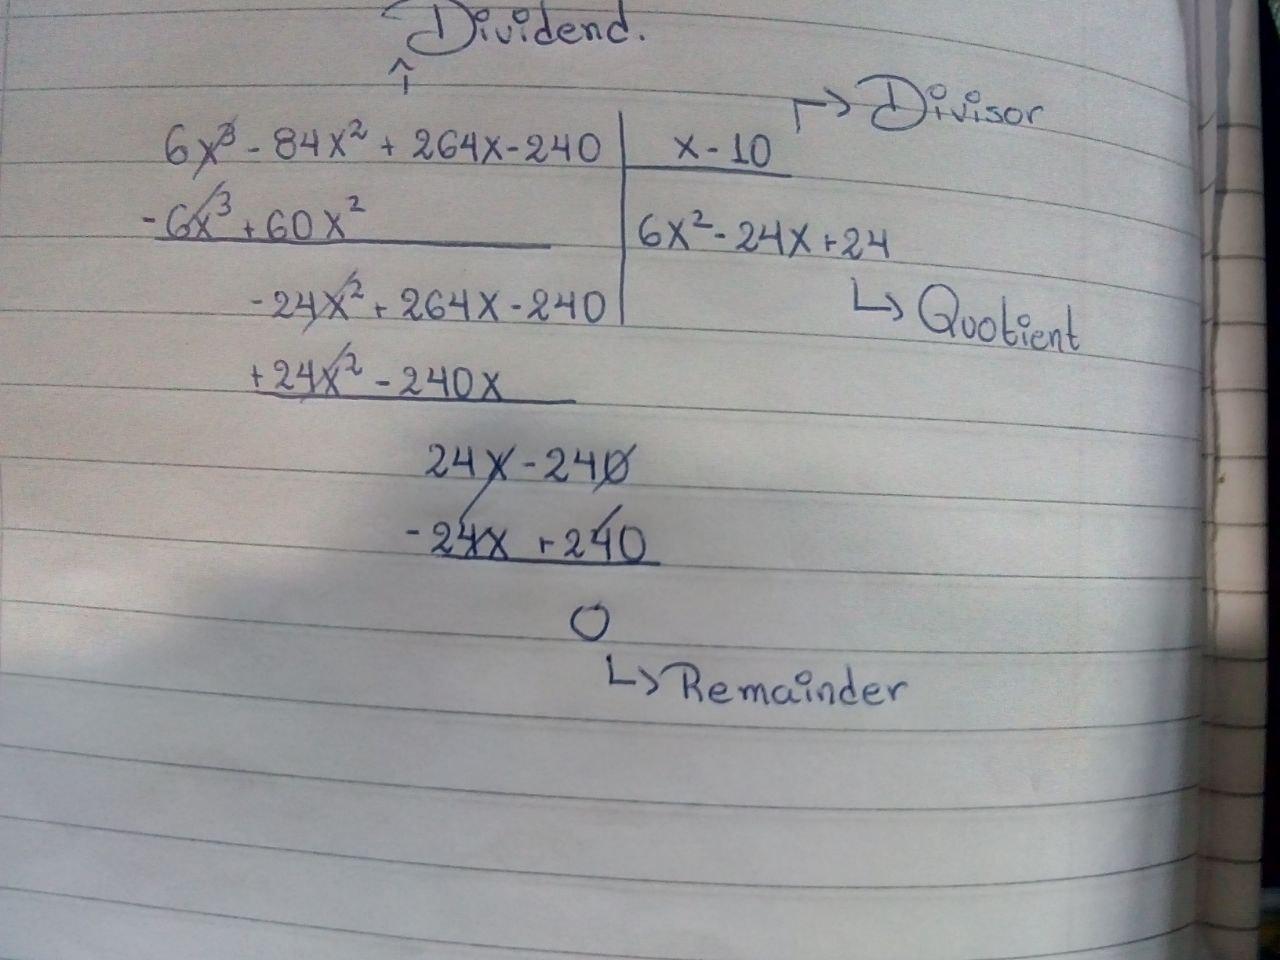 Dividend.
↑
↱ Divisor
6x³ - 84x² + 264x - 240 | x - 10
- 6x³ + 60x²
6x² - 24x + 24
- 24x² + 264x - 240
↳ Quotient
+ 24x² - 240x
24x - 240
- 24x + 240
0
↳ Remainder